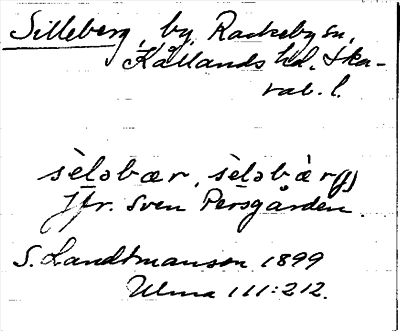 Silleberg, by, Rackeby sn,
Kållands hd. Ska-
rab. l.
sèləbær, sèləbær(j)
jfr. Sven Persgården.
S. Landtmanson 1899
Ulma 111:212.